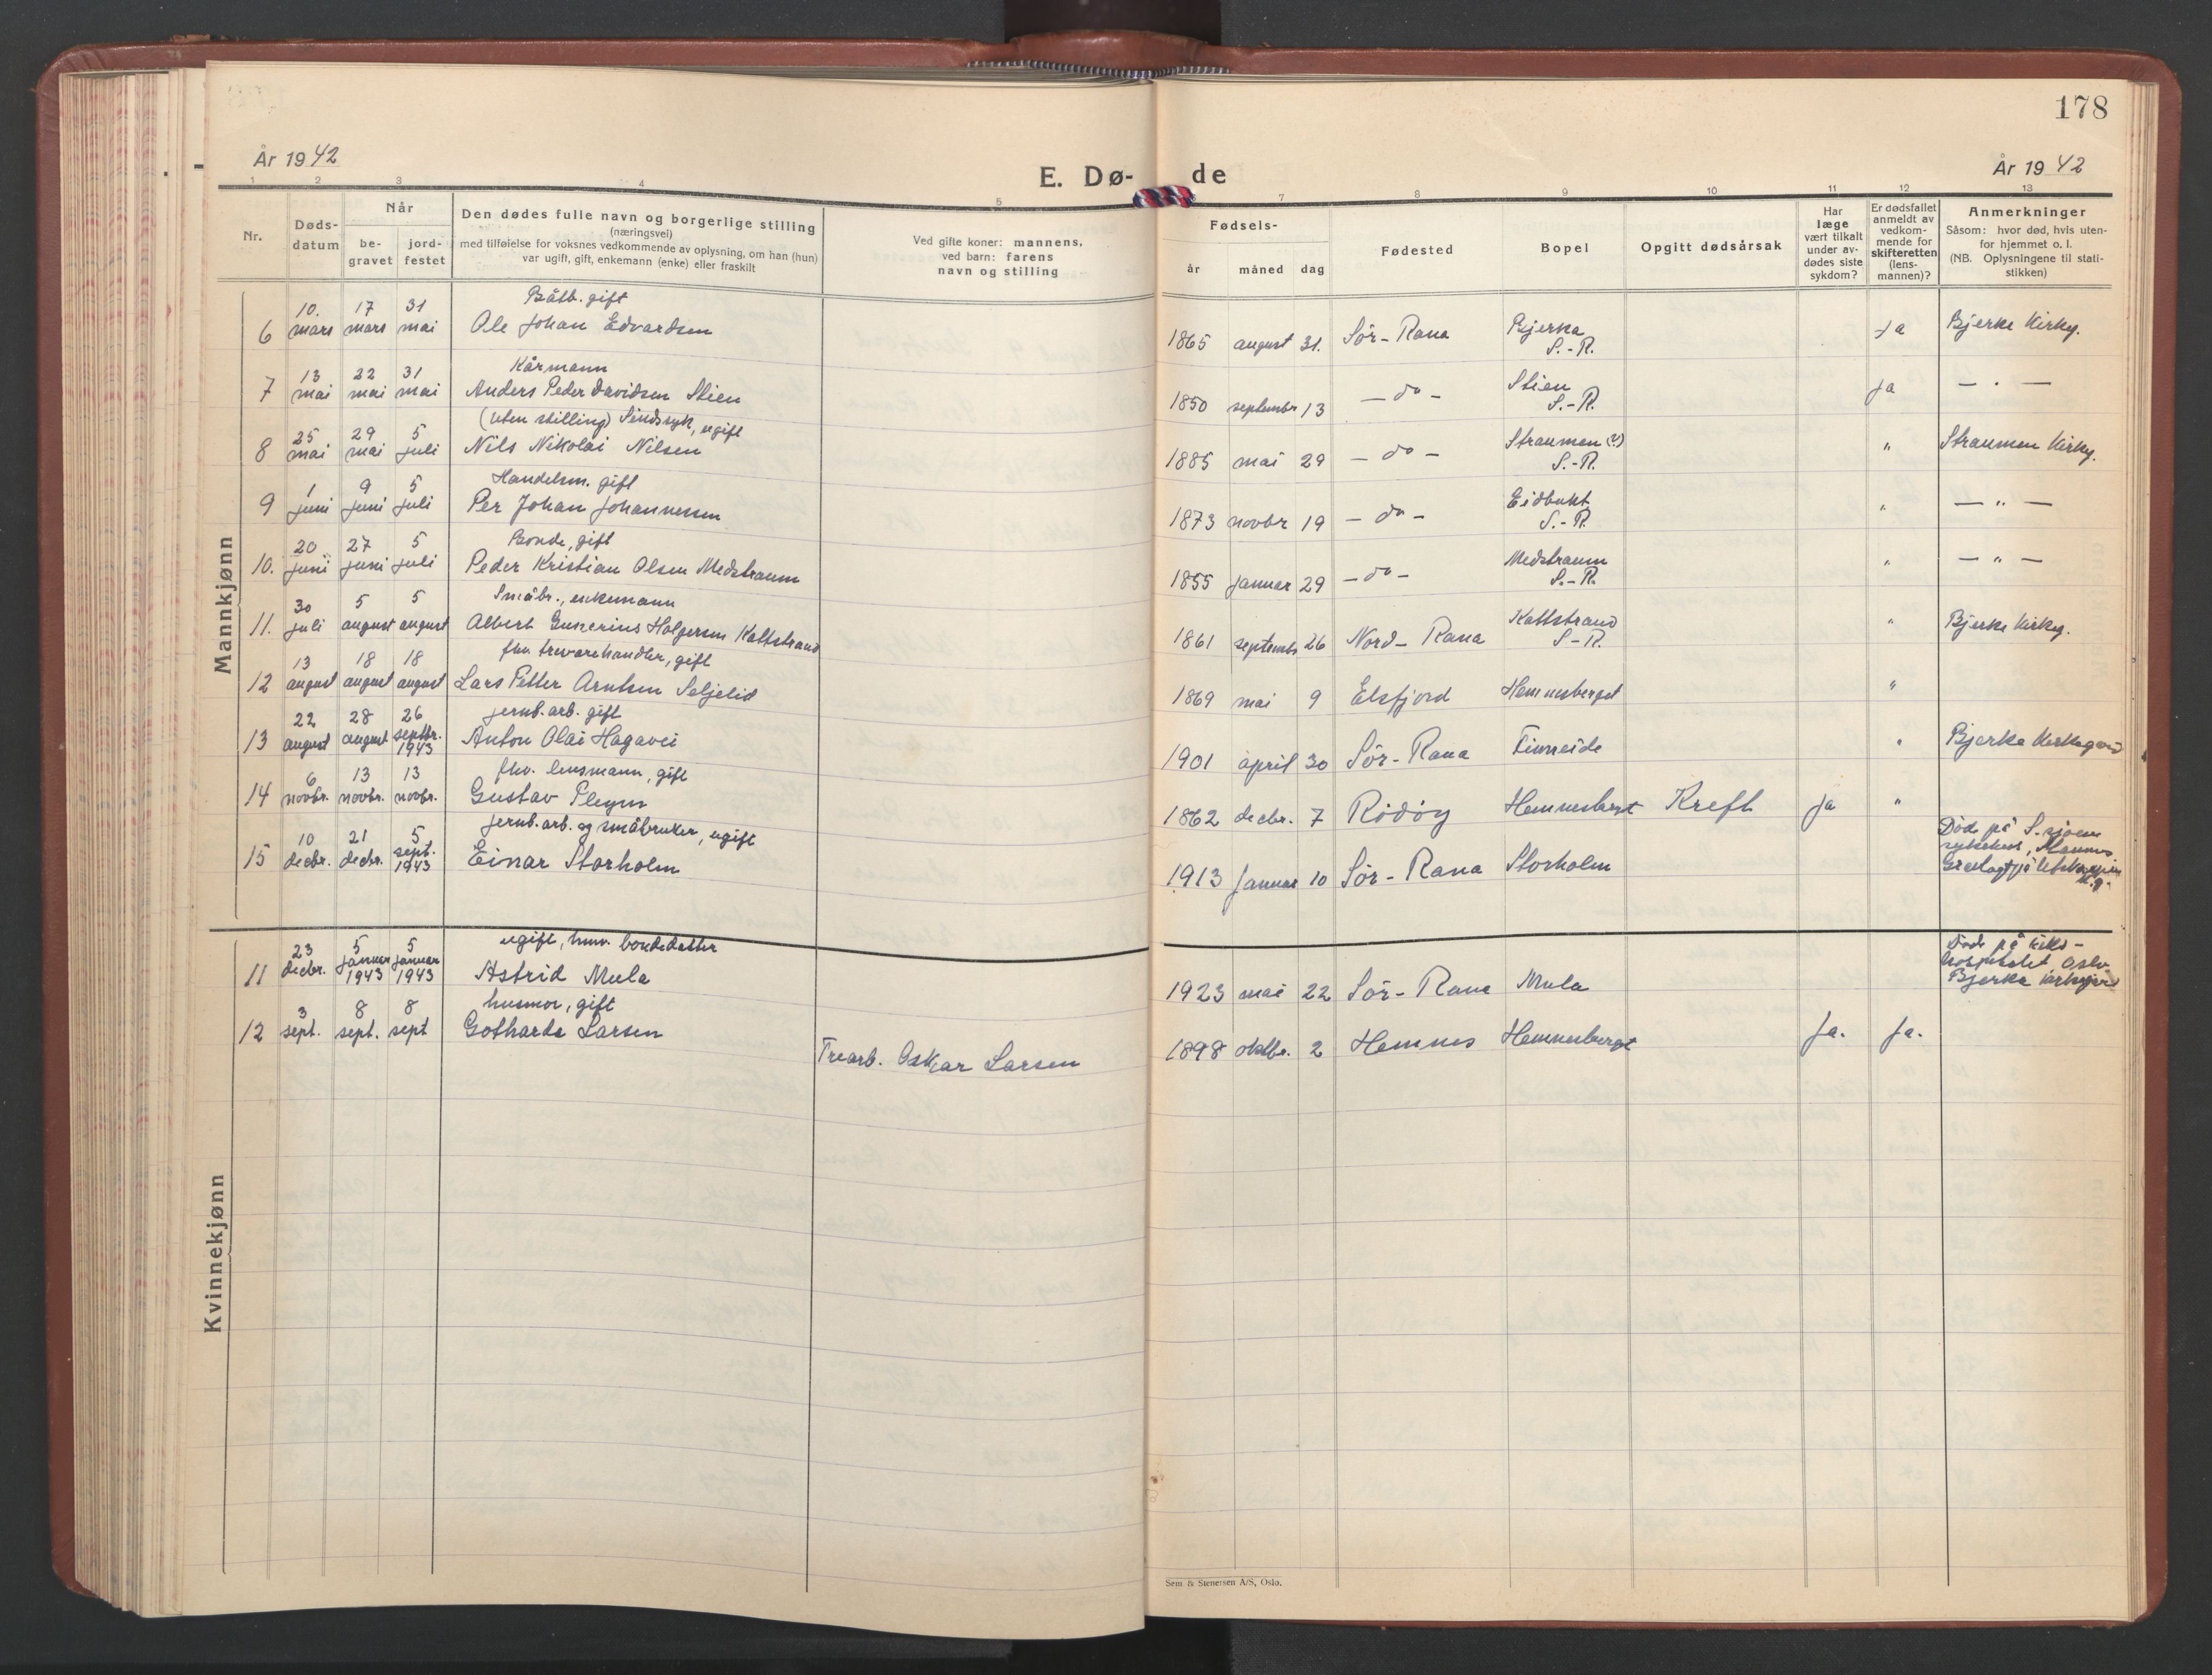 178
År 1942
E. Dø-
de
År 1942
1 2 3 4 5 7 8 9 10 11 12 13
Nr.
Døds-
datum
Når
be-
gravet
jord-
festet
Den dødes fulle navn og borgerlige stilling
(næringsvei)
med tilføielse for voksnes vedkommende av oplysning, om han (hun)
var ugift, gift, enkemann (enke) eller fraskilt
Ved gifte koner: mannens,
ved barn: farens
navn og stilling
Fødsels-
år måned dag
Fødested
Bopel
Opgitt dødsårsak
Har
læge
vært tilkalt
under av-
dødes siste
sykdom?
Er dødsfallet
anmeldt av
vedkom-
mende for
skifteretten
(lens-
mannen)?
Anmerkninger
Såsom: hvor død, hvis uten-
for hjemmet o. l.
(NB. Oplysningene til stati-
stikken)
Mannkjønn
10. 17 31 Båtb. gift
6 mars mars mai Ole Johan Edvardsen 1865 august 31. Sör-Rana Bjerka Ja Bjerke Kirkg.
S.-R.
13 22 31 Kårmann
7 mai mai mai Anders Peder Davidsen Stien 1850 septembr 13 — do — Stien Ja — " —
S.-R.
25 29 5 (uten stilling) Sindssyk, ugift
8 mai mai juli Nils Nikolai Nilsen 1885 mai 29 — do — Straumen (?) " Straumen Kirkg.
S.-R.
1 9 5 Handelsm. gift
9 juni juni juli Per Johan Johannessen 1873 novbr 19 — do — Eidbukt " — " —
S.-R.
20 27 5 Bonde, gift
10. juni juni juli Peder Kristian Olsen Medstraum 1855 januar 29 — do — Medstraum " — " —
S.-R.
30 5 5 Småbr., enkemann
11. juli august august Albert Gunerius Holgersen Kattstrand 1861 septembr 26 Nord-Rana Kattstrand " Bjerke Kirkg.
S-R.
13 18 18 fhv. trevarehandler, gift
12 august august august Lars Petter Arntsen Seljelid 1869 mai 9 Elsfjord Hemnesberget "
22 28 26 jernb. arb. gift
13 august august septbr. 1943 Anton Olai Hagavei 1901 april 30 Sör-Rana Finneide " Bjerka Kirkegård
6 13 13 fhv. lensmann, gift
14 novbr. novbr. novbr. Gustav Pleym 1862 decbr. 7 Rödöy Hemnesberget Kreft Ja "
10 21 5 jernb. arb. og småbruker, ugift
15 decbr. decbr. sept. 1943 Einar Storholm 1913 Januar 10 Sör-Rana Storholm
Död på S.sjoen
sykehus,
Kvinnekjønn
23 5 5 ugift, hmv. bondedatter
11 decbr. januar 1943 januar 1943 Astrid Mula 1923 mai 22 Sör-Rana Mula
Död på Riks-
hospitalet Oslo
Bjerka kirkegård
3 8 8 husmor, gift
12 sept. sept. sept Gotharda Larsen Trearb. Oskar Larsen 1898 oktbr. 2 Hemnes Hemnesberget Ja. Ja.
Sem & Stenersen A/S, Oslo.